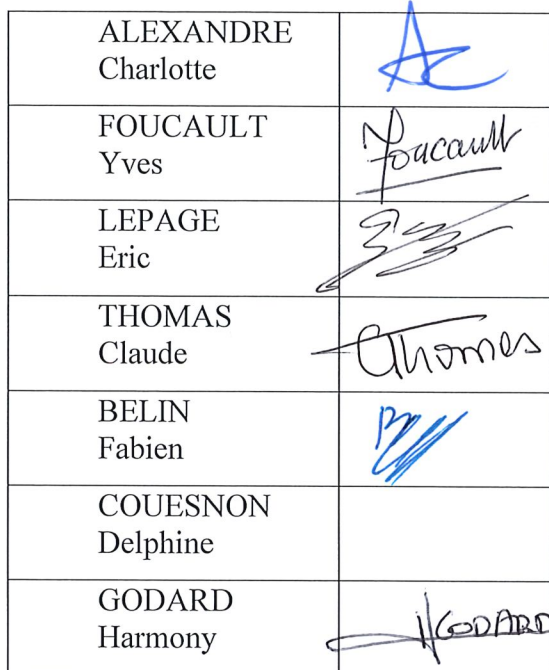 ALEXANDRE
Charlotte
AC
FOUCAULT
Yves
Foucault
LEPAGE
Eric
THOMAS
Claude
CThomas
BELIN
Fabien
COUESNON
Delphine
GODARD
Harmony
HGODARD